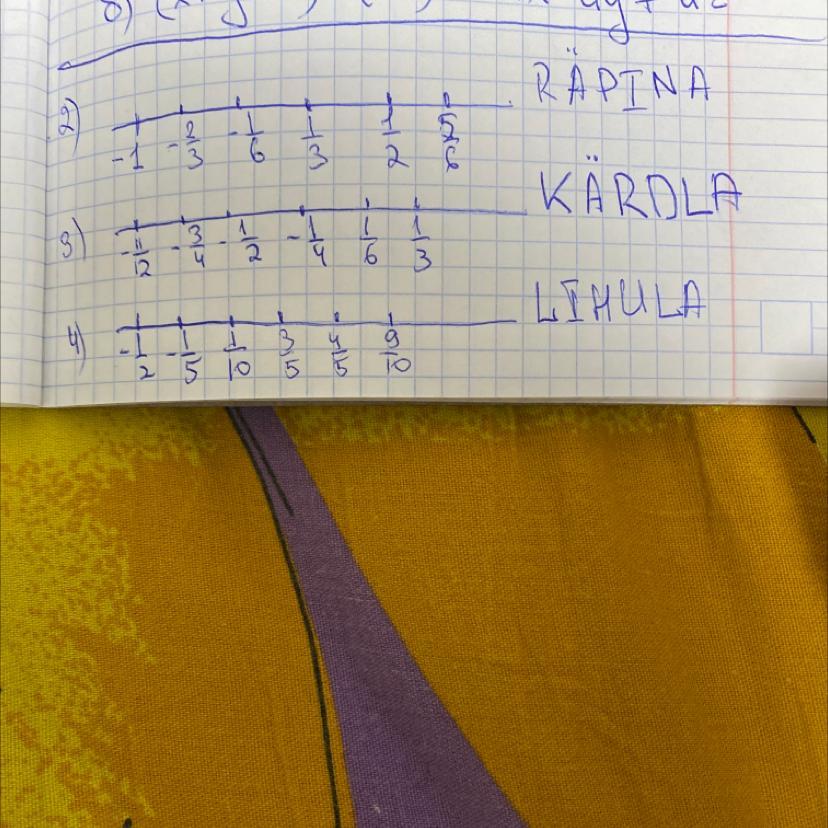 2) -1 -2/3 -1/6 1/3 1/2 5/6 RÄPINA
3) -11/12 -3/4 -1/2 -1/4 1/6 1/3 KÄRDLA
4) -1/2 -1/5 1/10 3/5 4/5 9/10 LIHULA